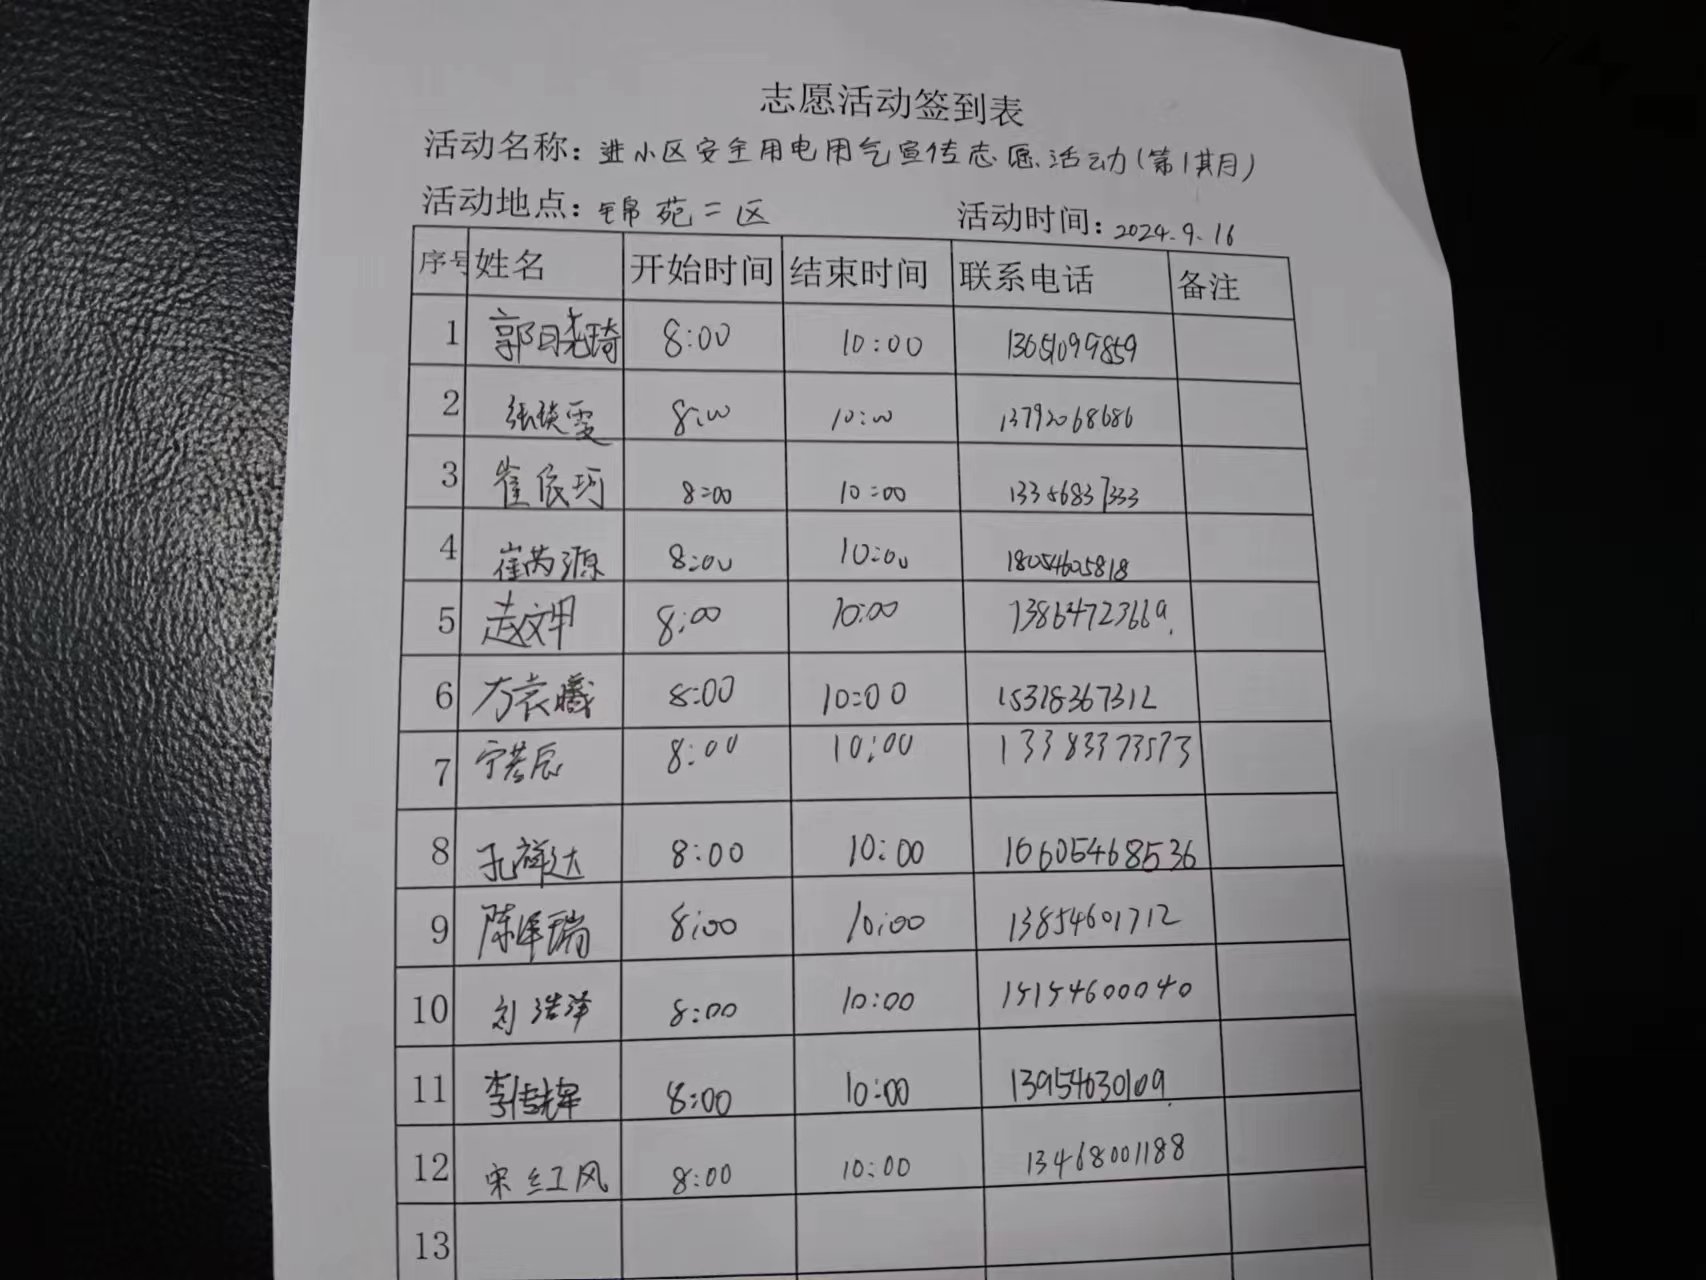 志愿活动签到表
活动名称: 进小区安全用电用气宣传志愿活动(第1期)
活动地点: 锦苑二区 活动时间: 2024.9.16
序号 姓名 开始时间 结束时间 联系电话 备注
1 郭晓琦 8:00 10:00 13651099859
2 8:00 10:00 13792068686
3 崔依珂 8:00 10:00 13356837333
4 崔芮源 8:00 10:00 18054605818
5 赵文甲 8:00 10:00 13864723669
6 方袁曦 8:00 10:00 15318367312
7 宁若辰 8:00 10:00 13383373573
8 孔祥达 8:00 10:00 10605468536
9 陈泽瑞 8:00 10:00 13854601712
10 刘浩泽 8:00 10:00 15154600040
11 李传辉 8:00 10:00 13954630109
12 宋红风 8:00 10:00 13468001188
13